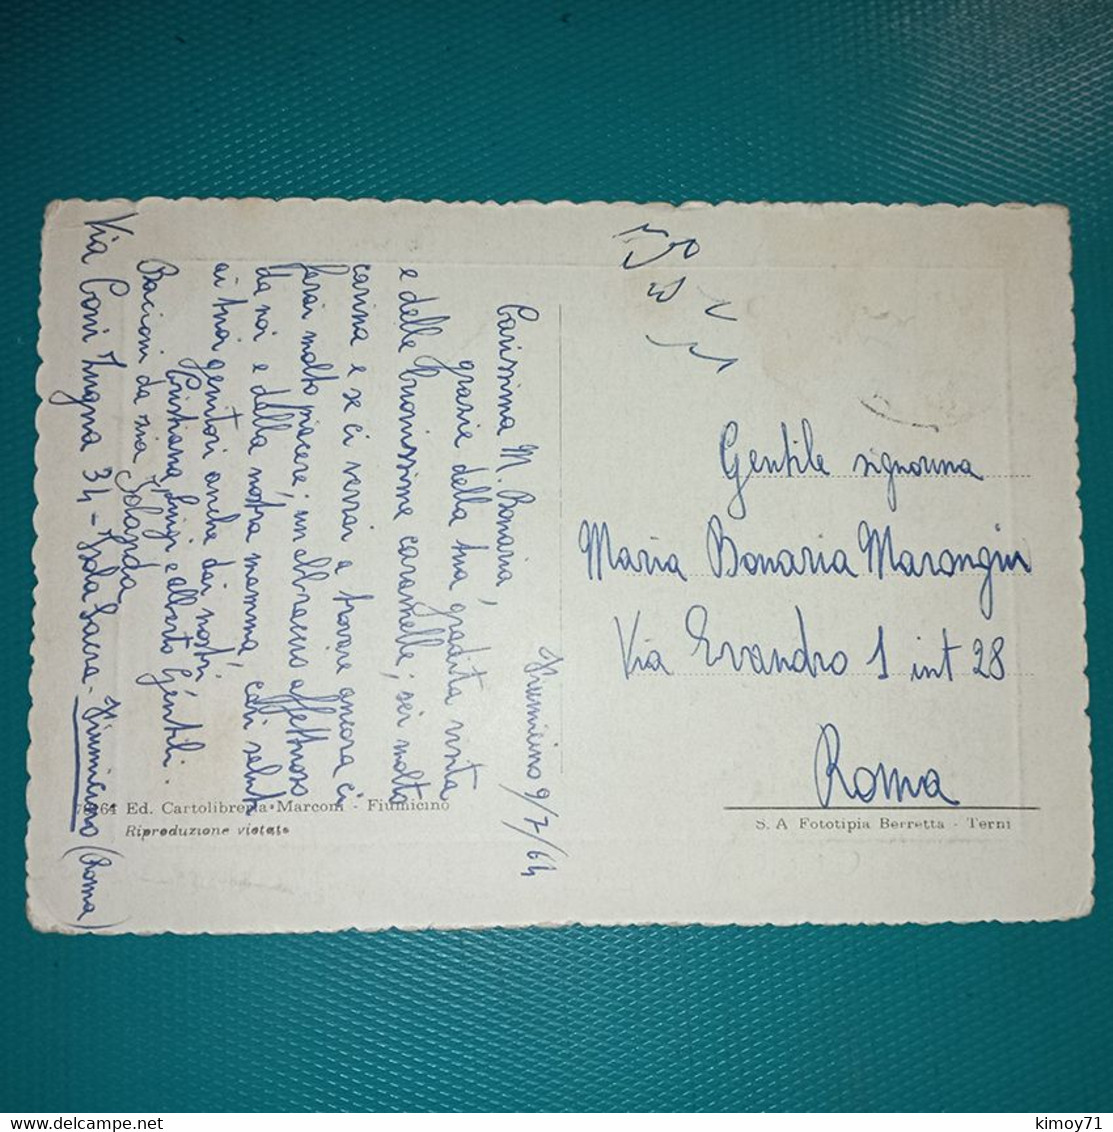 Fiumicino 9/7/64
Carissima M. Bonaria,
grazie della tua gradita visita
e delle buonissime caramelle; sei molto
carina e se ci verrai a trovare ancora ci
farai molto piacere; un abbraccio affettuoso
da noi e dalla nostra mamma, cari saluti
ai tuoi genitori anche dai nostri
Cristiana, Luigi e Alberto Gentili.
Bacioni da zia Jolanda
Via Coni Zugna 34 - Isola Sacra - Fiumicino (Roma)
Gentile signorina
Maria Bonaria Marongiu
Via Evandro 1 int 28
Roma
Ed. Cartolibreria Marconi - Fiumicino
Riproduzione vietata
S. A Fototipia Berretta - Terni
kimoy71